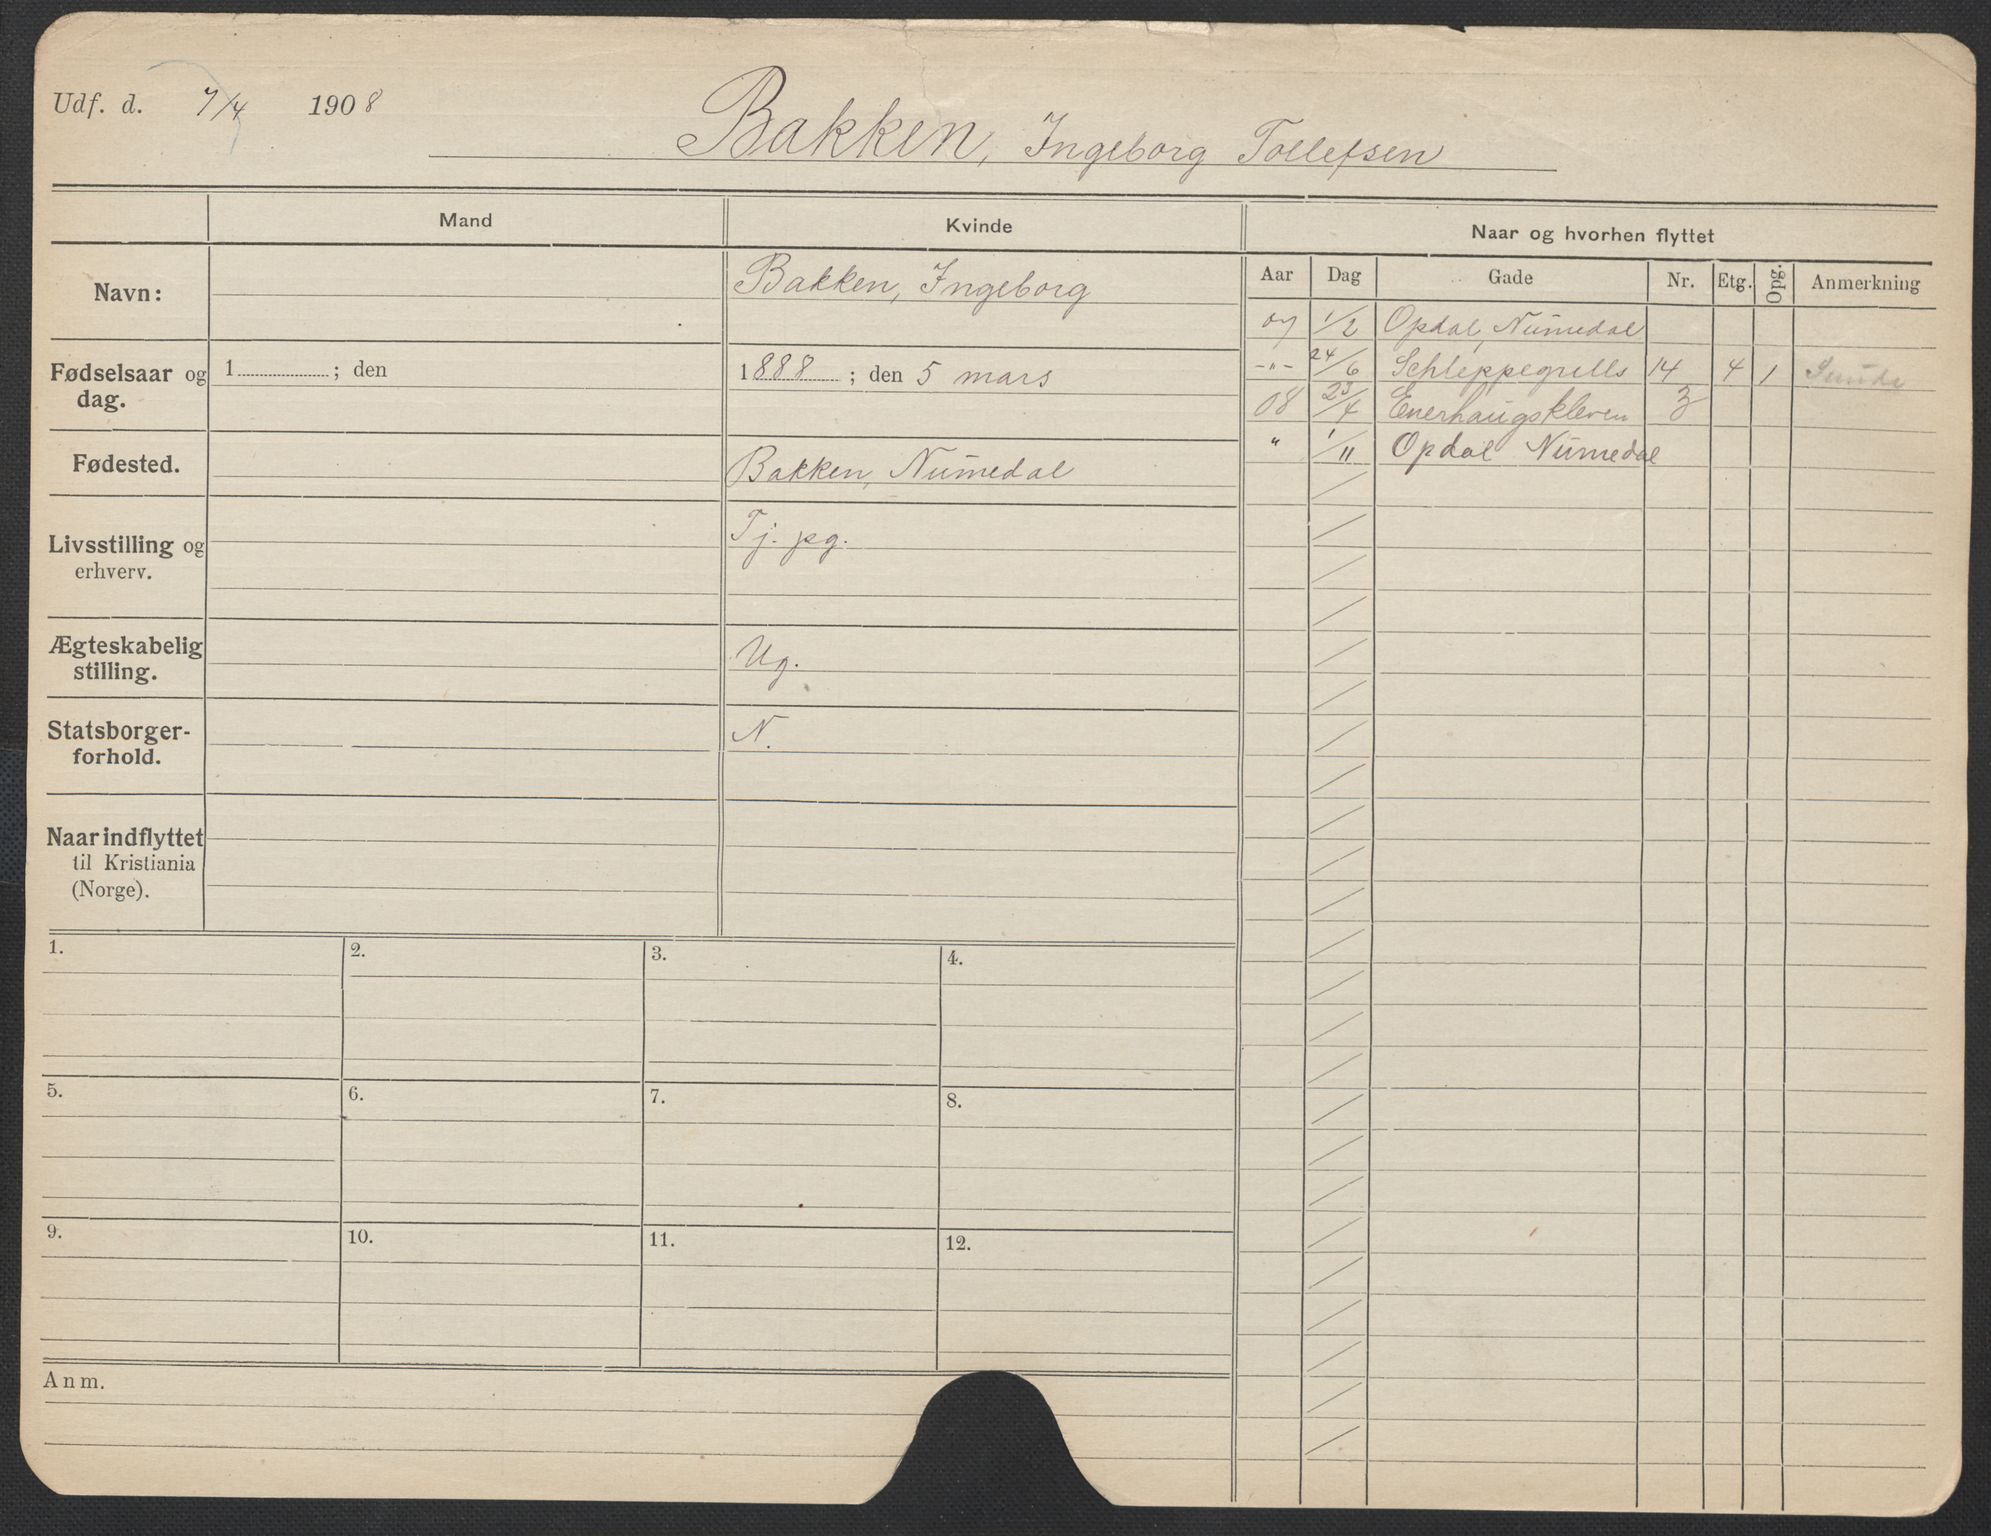 Udf. d. 7/4 1908
Bakken, Ingeborg Tollefsen
Mand Kvinde Naar og hvorhen flyttet
Aar Dag Gade Nr. Etg. Opg. Anmerkning
Navn: Bakken, Ingeborg
07 1/2 Opdal, Numedal
Fødselsaar og dag. 1 ; den 1888 ; den 5 mars
-"- 24/6 Schleppegrells 14 4 1
08 23/4 Enerhaugskleven 3
" 1/11 Opdal Numedal
Fødested. Bakken, Numedal
Livsstilling og
erhverv.
Tj. pg.
Ægteskabelig
stilling.
Ug.
Statsborger-
forhold.
N.
Naar indflyttet
til Kristiania
(Norge).
1. 2. 3. 4.
5. 6. 7. 8.
9. 10. 11. 12.
Anm.